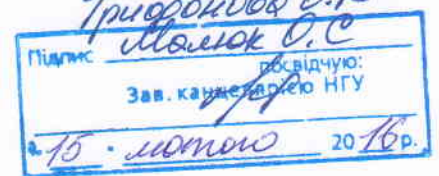 Трифонова О.
Підпис Малюк О.С
посвідчую:
Зав. канцелярією НГУ
"15" лютого 2016р.